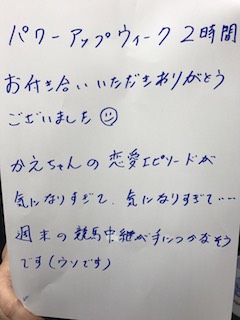 パワーアップウィーク 2時間
お付き合いいただきありがとう
ございました☺
かえちゃんの恋愛エピソードが
気になりすぎて、気になりすぎて・・・・
週末の競馬中継が手につかなそう
です(ウソです)